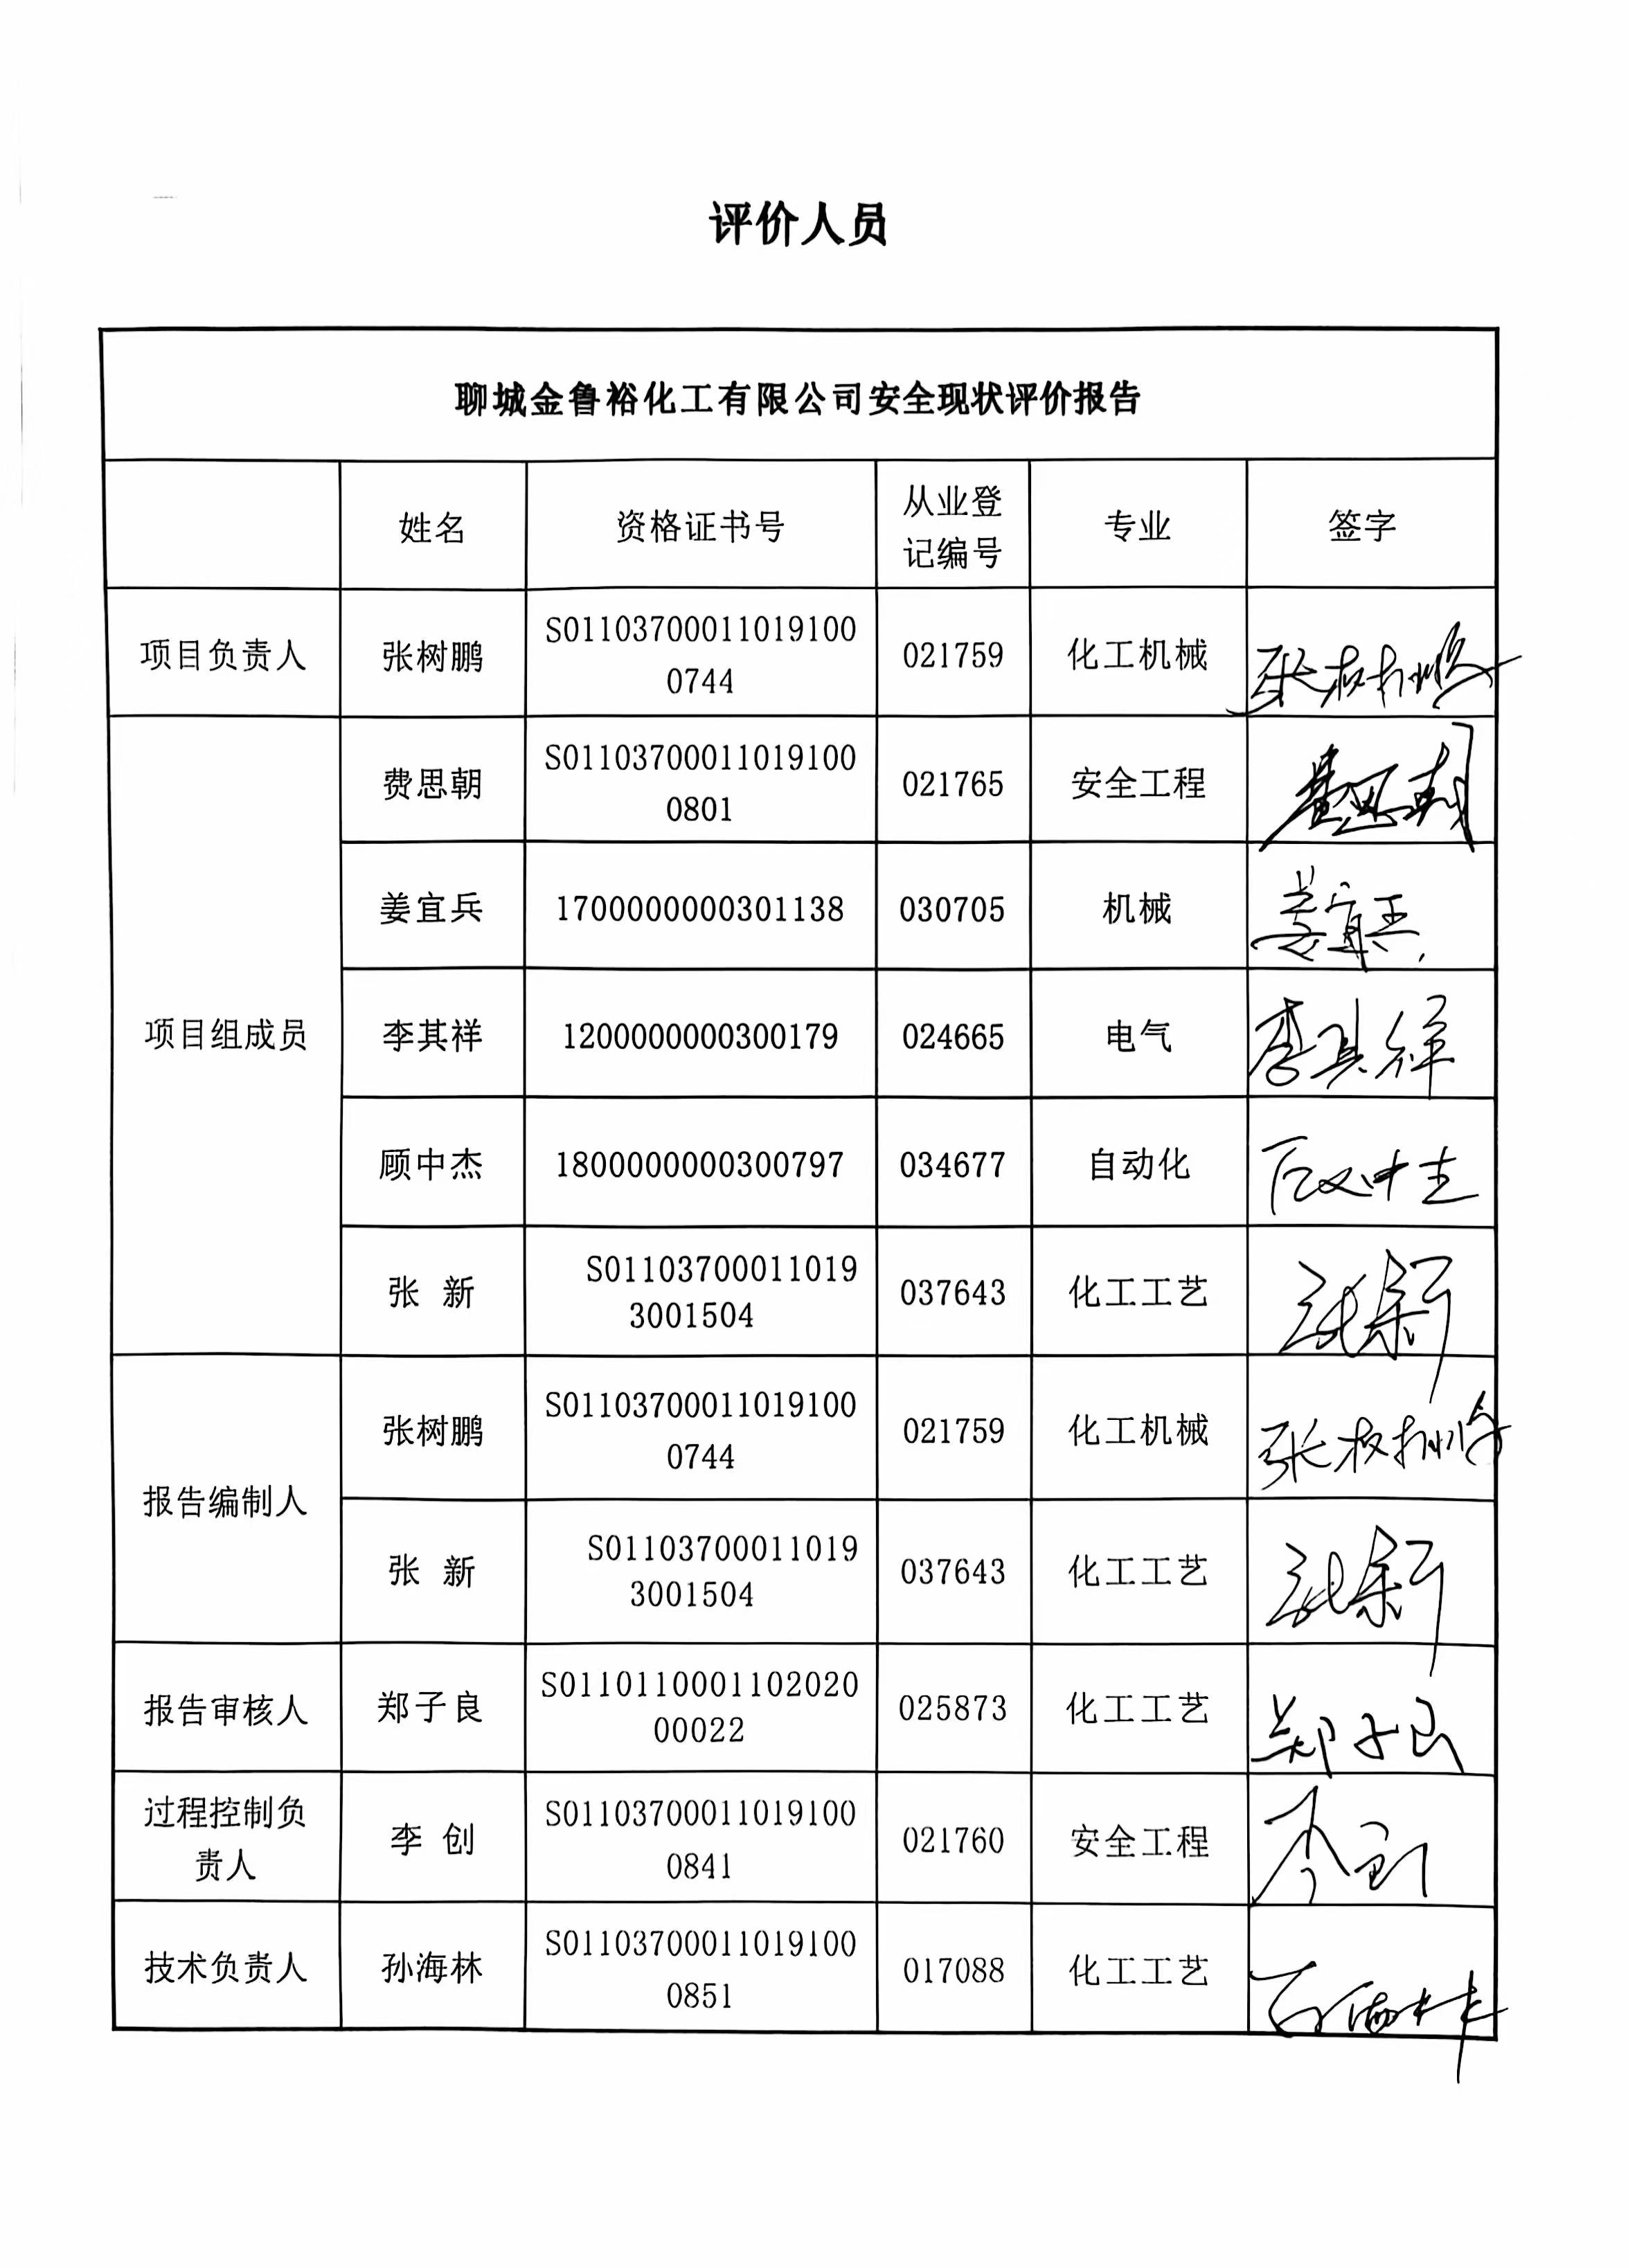 评价人员
聊城金鲁裕化工有限公司安全现状评价报告
姓名 资格证书号 从业登记编号 专业 签字
项目负责人 张树鹏 S011037000110191000744 021759 化工机械 张树鹏
项目组成员 费思朝 S011037000110191000801 021765 安全工程 费思朝
姜宜兵 1700000000301138 030705 机械 姜宜兵
李其祥 1200000000300179 024665 电气 李其祥
顾中杰 1800000000300797 034677 自动化 顾中杰
张 新 S011037000110193001504 037643 化工工艺 张新
报告编制人 张树鹏 S011037000110191000744 021759 化工机械 张树鹏
张 新 S011037000110193001504 037643 化工工艺 张新
报告审核人 郑子良 S011011000110202000022 025873 化工工艺 郑子良
过程控制负责人 李 创 S011037000110191000841 021760 安全工程 李创
技术负责人 孙海林 S011037000110191000851 017088 化工工艺 孙海林